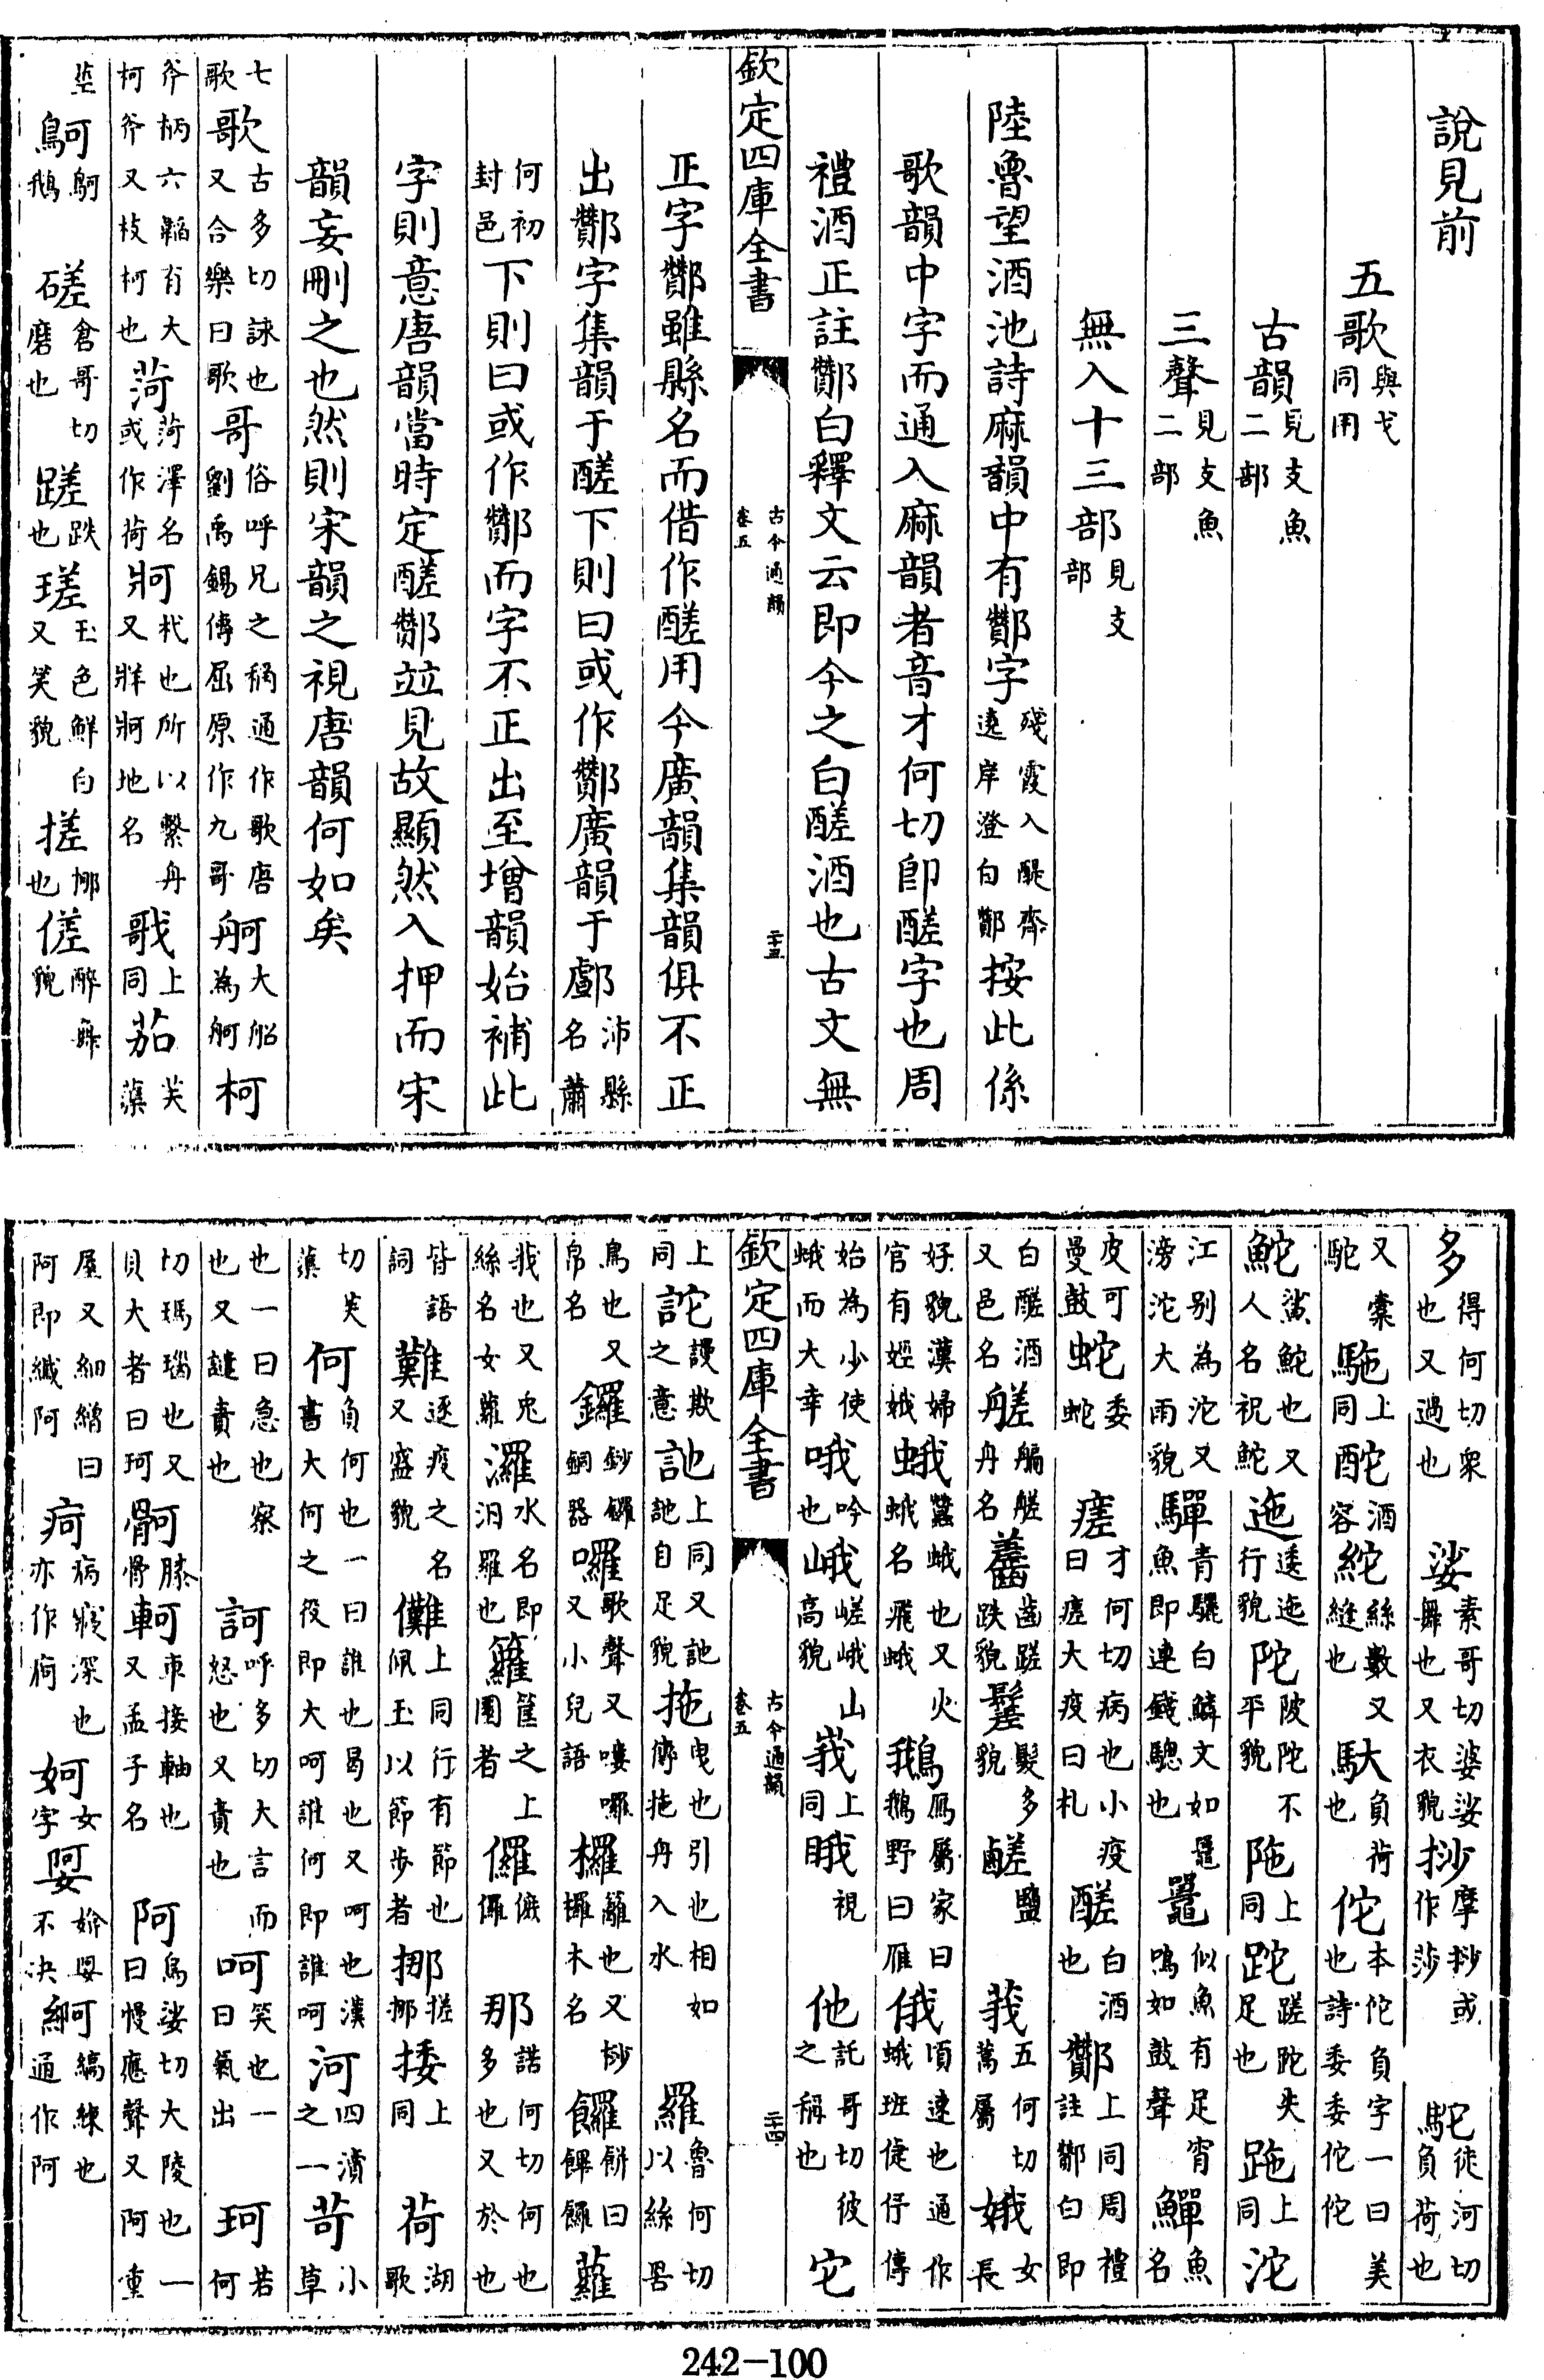 說見前
五歌與戈同用
古韻見支魚二部
三聲見支魚二部
無入十三部見支部
陸魯望酒池詩麻韻中有酇字殘霞入醍齊遠岸澄白酇按此係
歌韻中字而通入麻韻者音才何切卽醝字也周
禮酒正註酇白釋文云即今之白醝酒也古文無
欽定四庫全書 古今通韻 卷五 二十三
正字酇雖縣名而借作醝用今廣韻集韻俱不正
出酇字集韻于醝下則曰或作酇廣韻于䣜沛縣名蕭
何初封邑下則曰或作酇而字不正出至增韻始補此
字則意唐韻當時定醝酇竝見故顯然入押而宋
韻妄刪之也然則宋韻之視唐韻何如矣
七歌歌古多切詠也又合樂曰歌哥俗呼兄之稱通作歌唐劉禹錫傳屈原作九哥舸大船為舸柯
斧柄六韜有大柯斧又枝柯也菏菏澤名或作荷牁杙也所以繫舟又牂牁地名㰤上同茄芙蕖
莖鴚鴚鵝磋倉哥切磨也蹉跌也瑳玉色鮮白又笑貌搓挪也傞醉舞貌
多得何切眾也又過也娑素哥切婆娑舞也又衣貌挱摩挱或作莎駝徒河切負荷也
又橐駝駞上同酡酒容紽絲數又縫也馱負荷也佗本佗負字一曰美也詩委委佗佗
鮀鯊鮀也又人名祝鮀迤逶迤行貌陀陂陀不平貌陁上同跎蹉跎失足也跑上同沱
江別為沱又滂沱大雨貌驒青驪白鱗文如鼉魚即連錢驄也鼉似魚有足宵鳴如鼓聲鱓魚名
皮可曼鼓蛇委蛇瘥才何切病也小疫曰瘥大疫曰札醝白酒也酇上同周禮註酇白即
白醝酒又邑名艖艑艖舟名䴾齒蹉跌貌髽髮多貌鹺鹽莪五何切蘿屬娥女長
好貌漢婦官有婬娥蛾蠶蛾也又火蛾名飛蛾鵝鴈屬家曰鵝野曰雁俄頃速也通作蛾班倢伃傳
始為少使蛾而大幸哦吟也峨嵯峨山高貌峩上同睋視他託哥切彼之稱也它
欽定四庫全書 古今通韻 卷五 二十四
上同詑謾欺之意訑上同又訑訑自足貌拖曳也引也相如傳拖舟入水羅魯何切以絲罟
鳥也又帛名鑼鈔鑼銅器囉歌聲又嘍囉又小兒語欏籬也又桫欏木名饠餅曰饆饠蘿
莪也又兔絲名女蘿灑水名即汨羅也籮筐之上圓者儸㑩儸那諾何切何也多也又於也
皆語詞難逐疫之名又盛貌儺上同行有節也佩玉以節步者挪搓挪捼上同荷湖歌
切芙蕖何負何也一曰誰也曷也又呵也漢書大何之役即大呵誰何即誰呵河四瀆之一苛小草
也一曰急也察也又譴責也訶呼多切大言而怒也又責也呵笑也一曰氣出珂若何
切瑪瑙也又貝大者曰珂䯊膝骨軻車接軸也又孟子名阿烏娑切大陵也一曰慢應聲又阿重
屋又細繒曰阿即纖阿疴病㾓深也亦作痾妸女字娿媕娿不決䋪縞練也通作阿
242-100